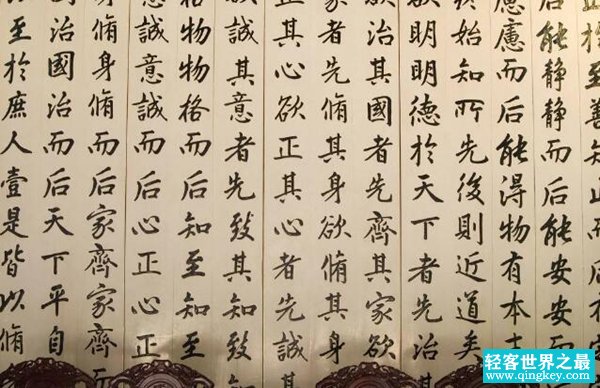 於至善知止而后有
后能静静而后能安安而
慮慮而后能得物有本
終始知所先後則近道矣
欲明明德於天下者先治其
欲治其國者先齊其家欲
家者先脩其身欲脩其身
正其心欲正其心者先誠
誠其意者先致其知致
格物物格而后知至知至
意誠意誠而后心正心正
身脩身脩而后家齊家齊而
治國治而后天下平自
至於庶人壹是皆以脩
轻客世界之最
www.qingkey.com